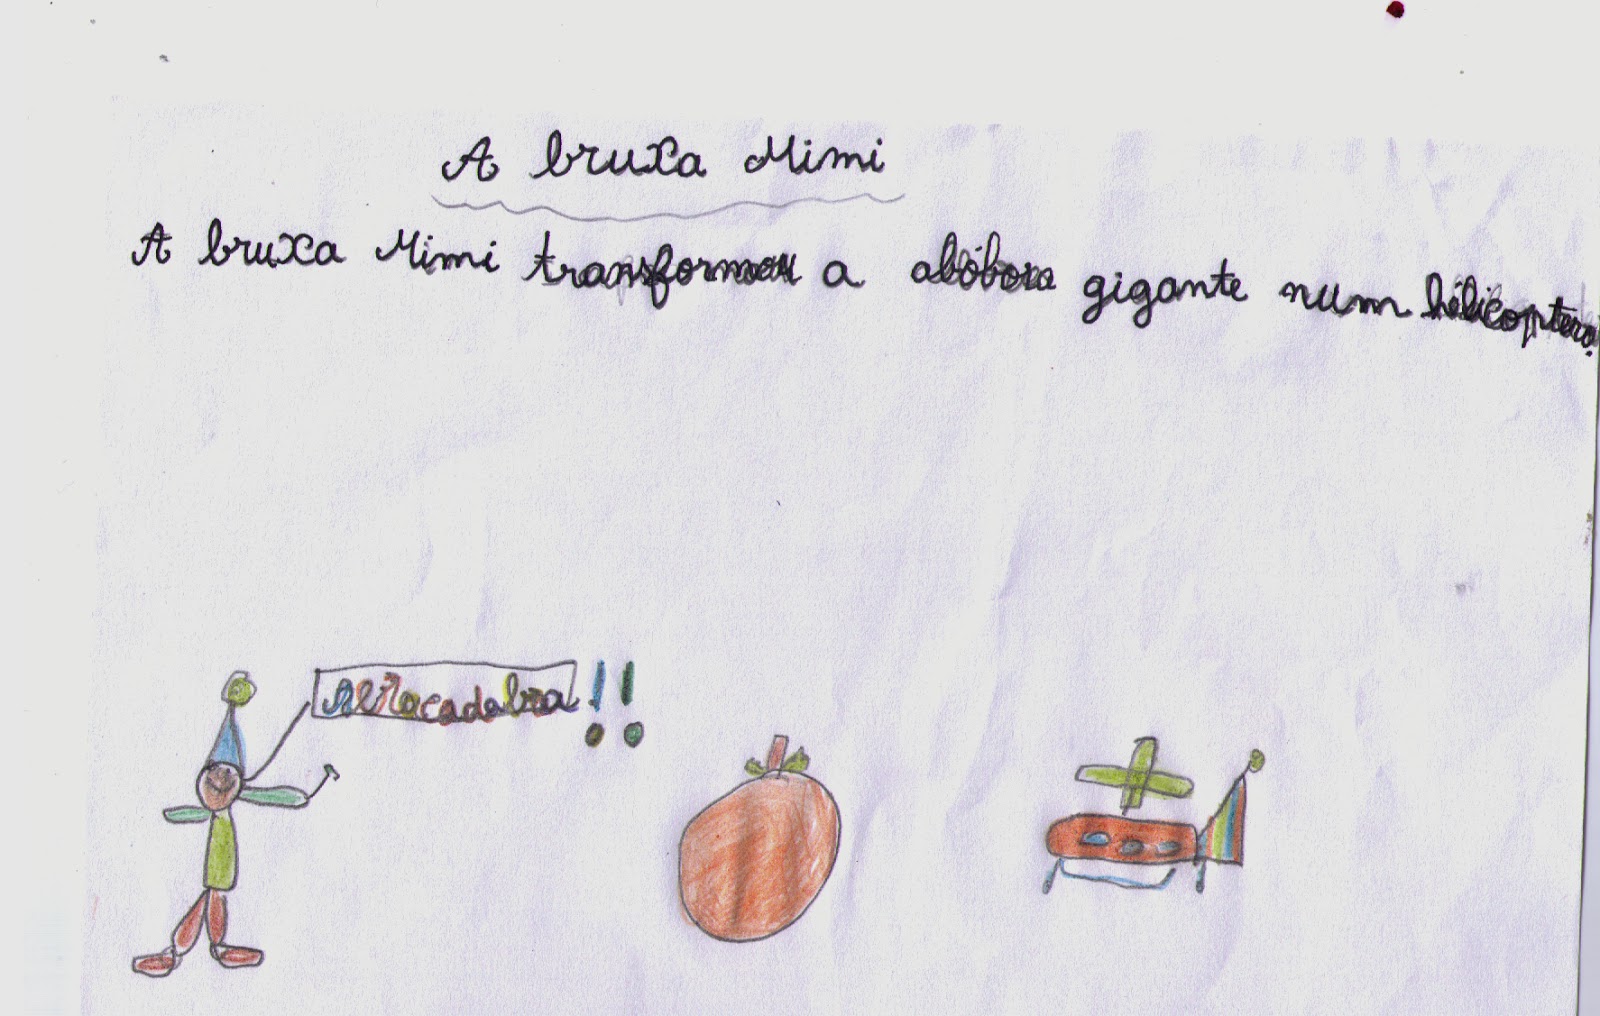 A bruxa Mimi
A bruxa Mimi transformou a abóbora gigante num hélicoptero.
Abracadabra!!